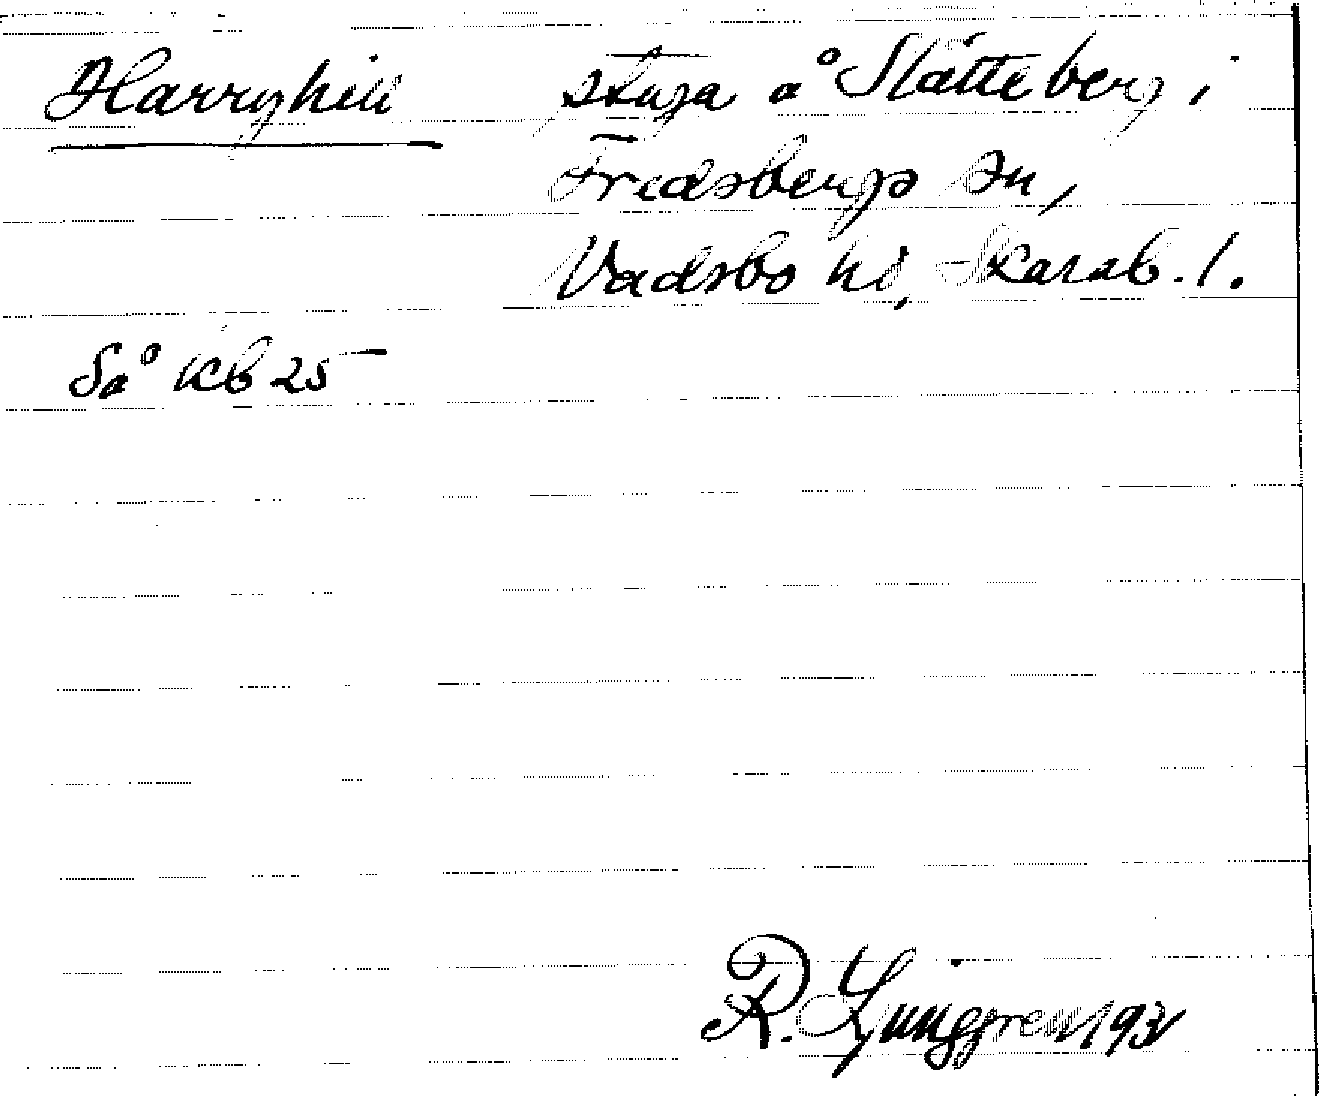 Harryhill stuga å Slätteberg i
Fredsbergs sn,
Vadsbo hd, Skarab. l.
Så Kb 25
R. Ljunggren 193